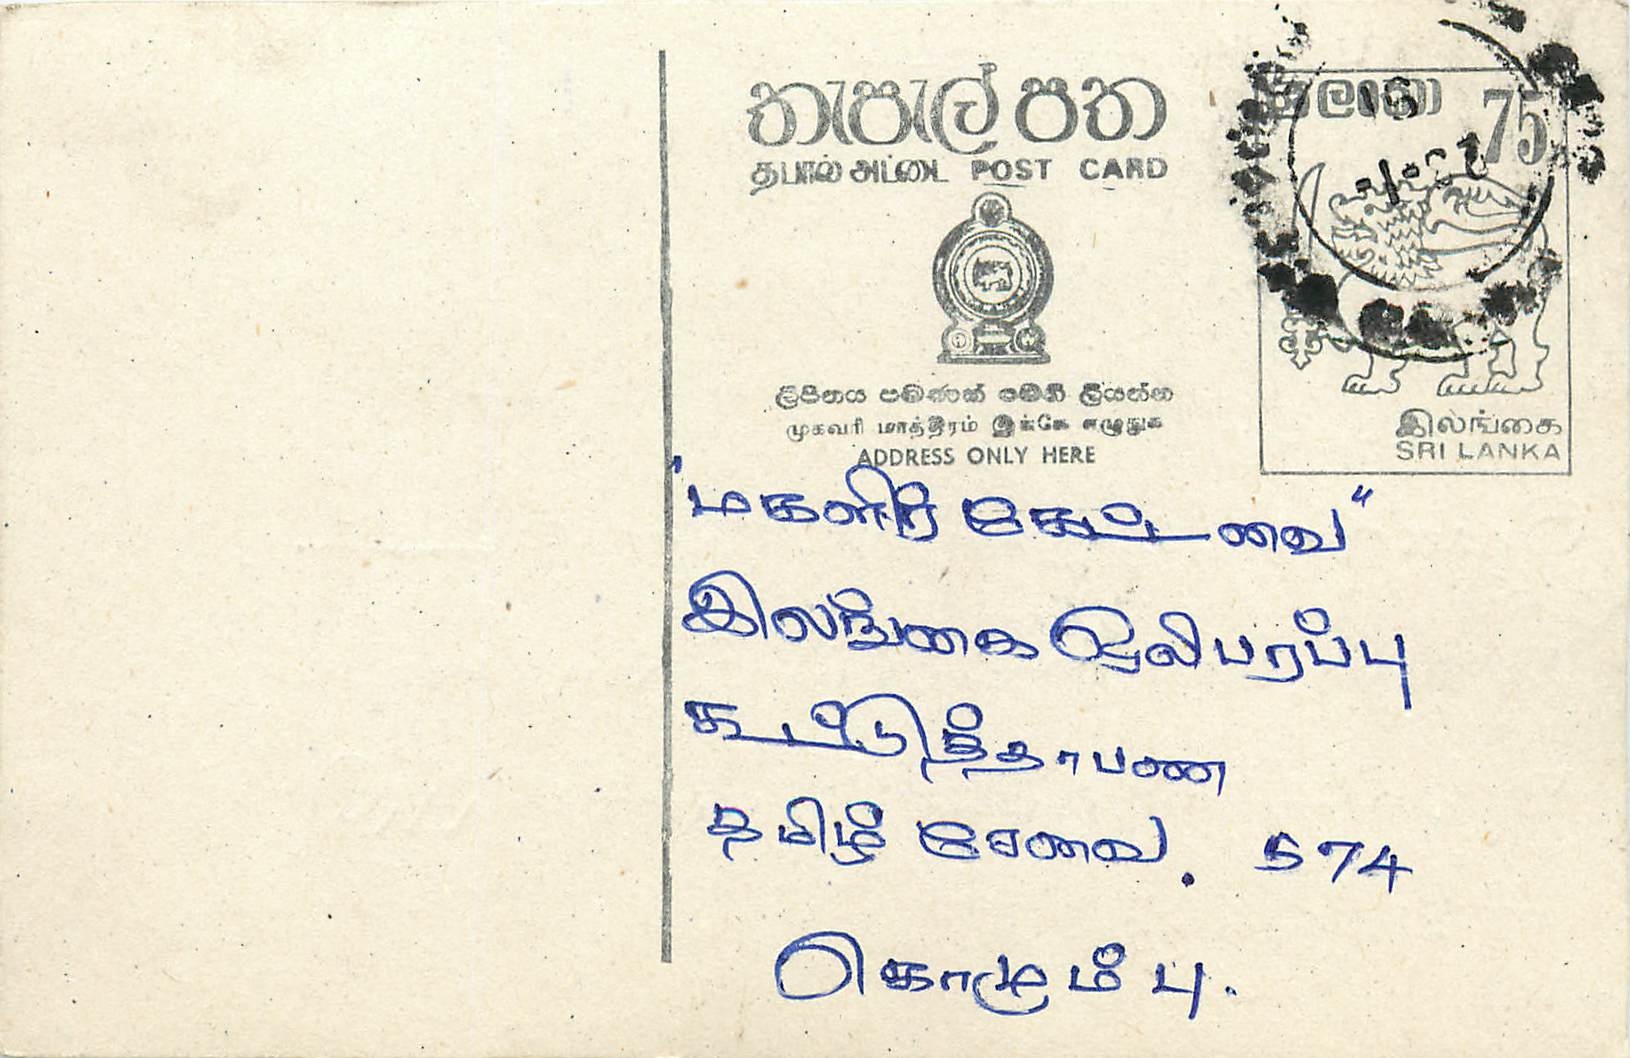 තැපැල් පත
தபால் அட்டை POST CARD
ලිපිනය පමණක් මෙහි ලියන්න
முகவரி மாத்திரம் இங்கே எழுதுக
ADDRESS ONLY HERE
ලංකා 75
இலங்கை
SRI LANKA
"மகளிர் கேட்டவை"
இலங்கை ஒலிபரப்பு
கூட்டுத்தாபண
தமிழ் சேவை. 574
கொழும்பு.